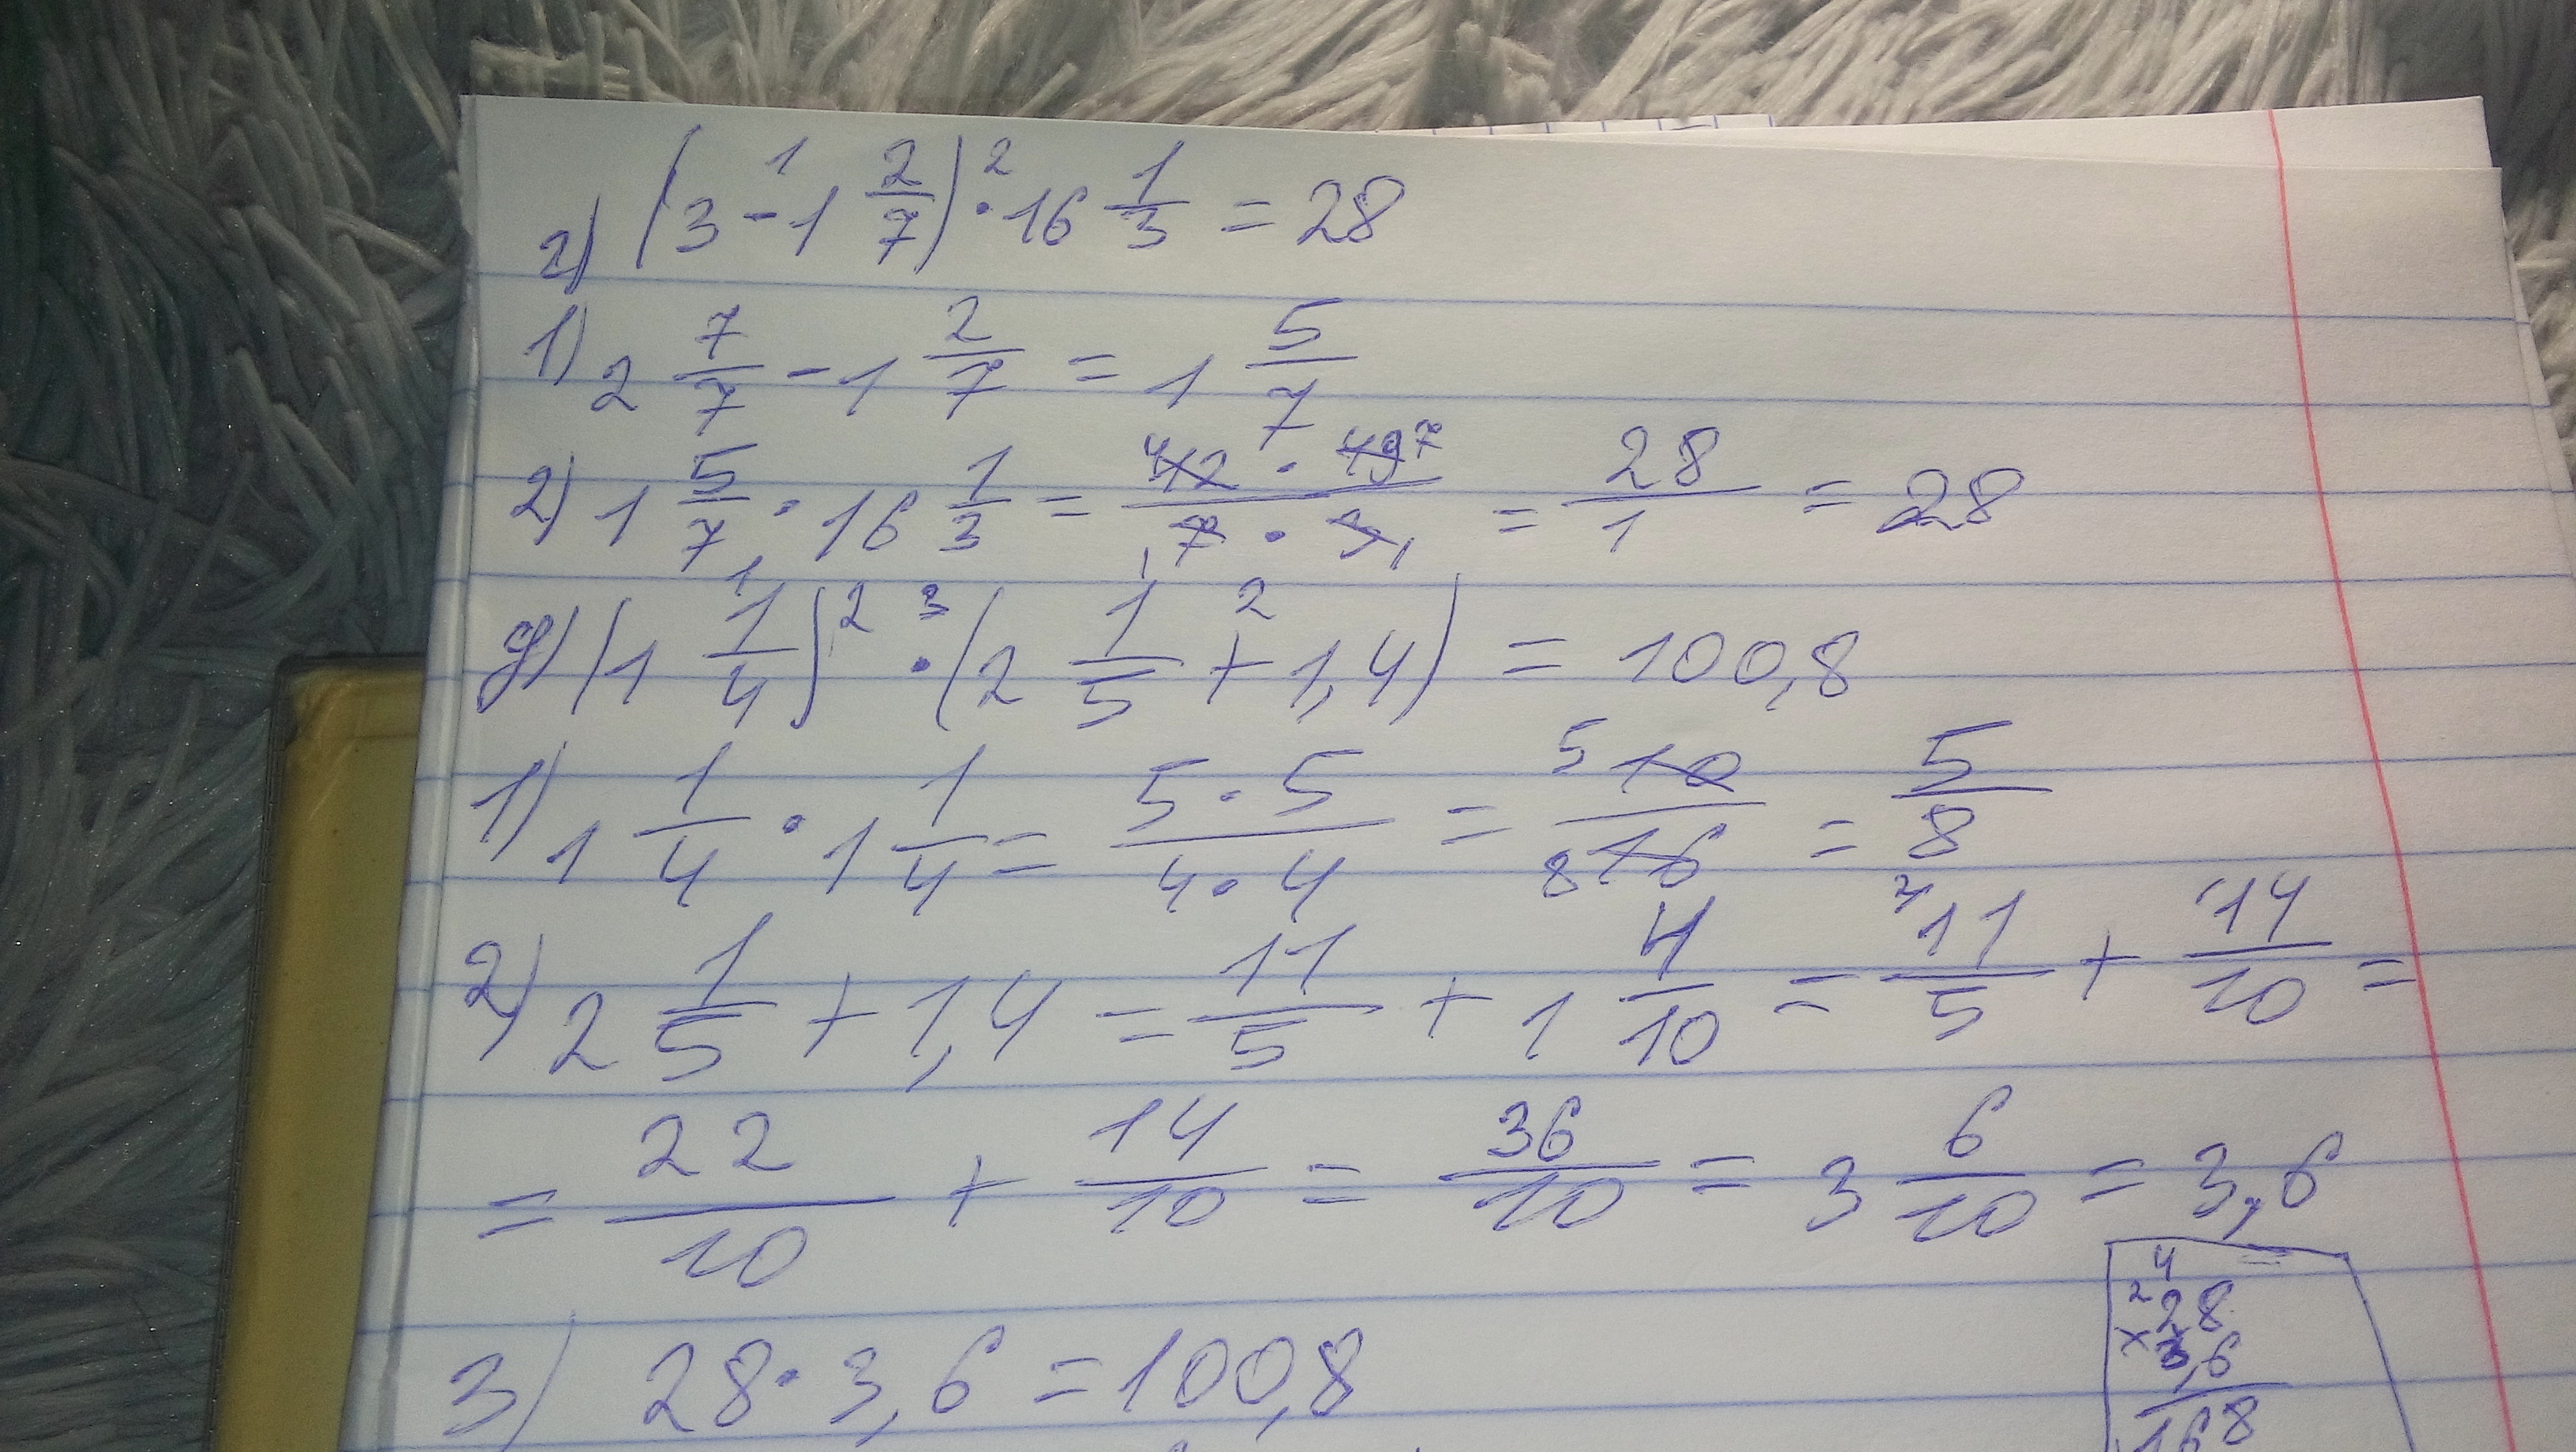 г) (3 - 1 2/7) · 16 1/3 = 28
1) 2 7/7 - 1 2/7 = 1 5/7
2) 1 5/7 · 16 1/3 = 42 · 49 / 7 · 3 = 28/1 = 28
д) (1 1/4)² · (2 1/5 + 1,4) = 100,8
1) 1 1/4 · 1 1/4 = 5 · 5 / 4 · 4 = 10/16 = 5/8
2) 2 1/5 + 1,4 = 11/5 + 1 4/10 = 11/5 + 14/10 =
= 22/10 + 14/10 = 36/10 = 3 6/10 = 3,6
3) 28 · 3,6 = 100,8
4
2 28
× 3,6
168